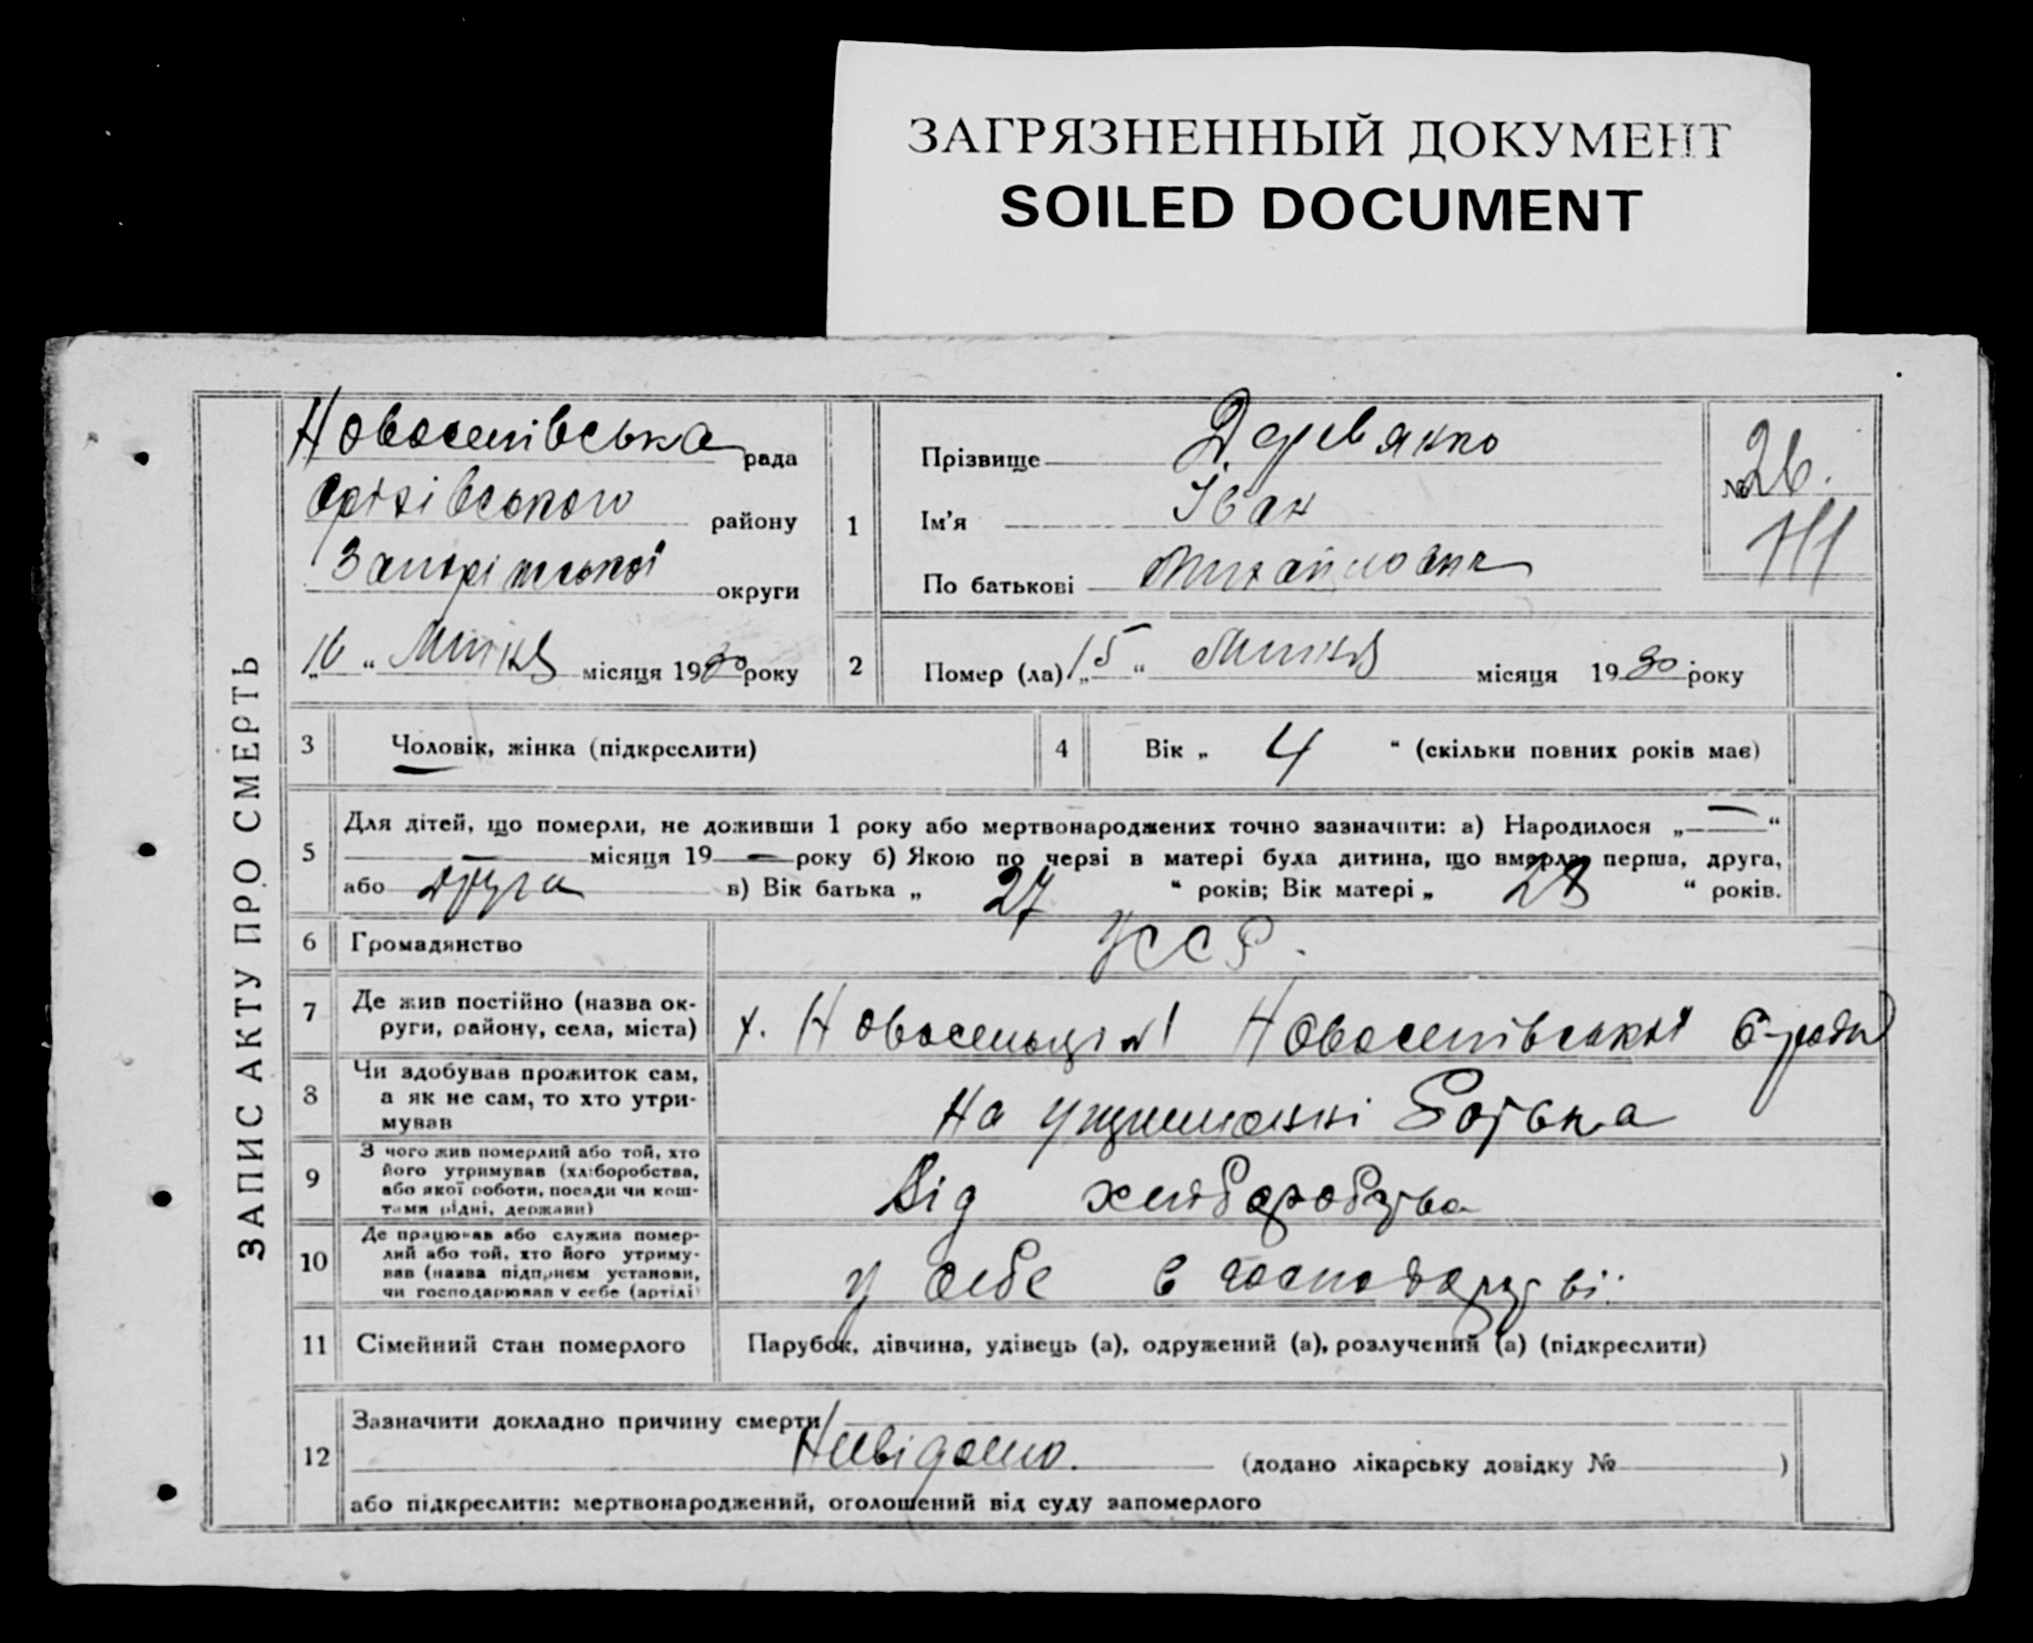 ЗАГРЯЗНЕННЫЙ ДОКУМЕНТ
SOILED DOCUMENT
ЗАПИС АКТУ ПРО СМЕРТЬ
Новоселівська рада
Оріхівського району
Запоріжської округи
„16“ Липня місяця 1930 року
1
Прізвище Деревянко
Ім’я Іван
По батькові Михайлович
№ 26.
2
Помер (ла) „15“ Липня місяця 1930 року
3 Чоловік, жінка (підкреслити)
4 Вік „ 4 “ (скільки повних років має)
5 Для дітей, що померли, не доживши 1 року або мертвонароджених точно зазначити: а) Народилося „—“
— місяця 19 — року б) Якою по черзі в матері була дитина, що вмерла, перша, друга,
або друга в) Вік батька „ 27 “ років; Вік матері „ 28 “ років.
6 Громадянство УССР.
7 Де жив постійно (назва ок-
руги, району, села, міста)
х. Новосельці Новоселівської с-ради
8 Чи здобував прожиток сам,
а як не сам, то хто утри-
мував
на утриманні батька
9 З чого жив померлий або той, хто
його утримував (хліборобства,
або якої роботи, посади чи кош-
тами рідні, держави)
Від хліборобства
10 Де працював або служив помер-
лий або той, хто його утриму-
вав (назва підприєм установи,
чи господарював у себе (артілі)
у себе в господарстві.
11 Сімейний стан померлого Парубок, дівчина, удівець (а), одружений (а), розлучений (а) (підкреслити)
12 Зазначити докладно причину смерти
Невідомо. (додано лікарську довідку № )
або підкреслити: мертвонароджений, оголошений від суду запомерлого